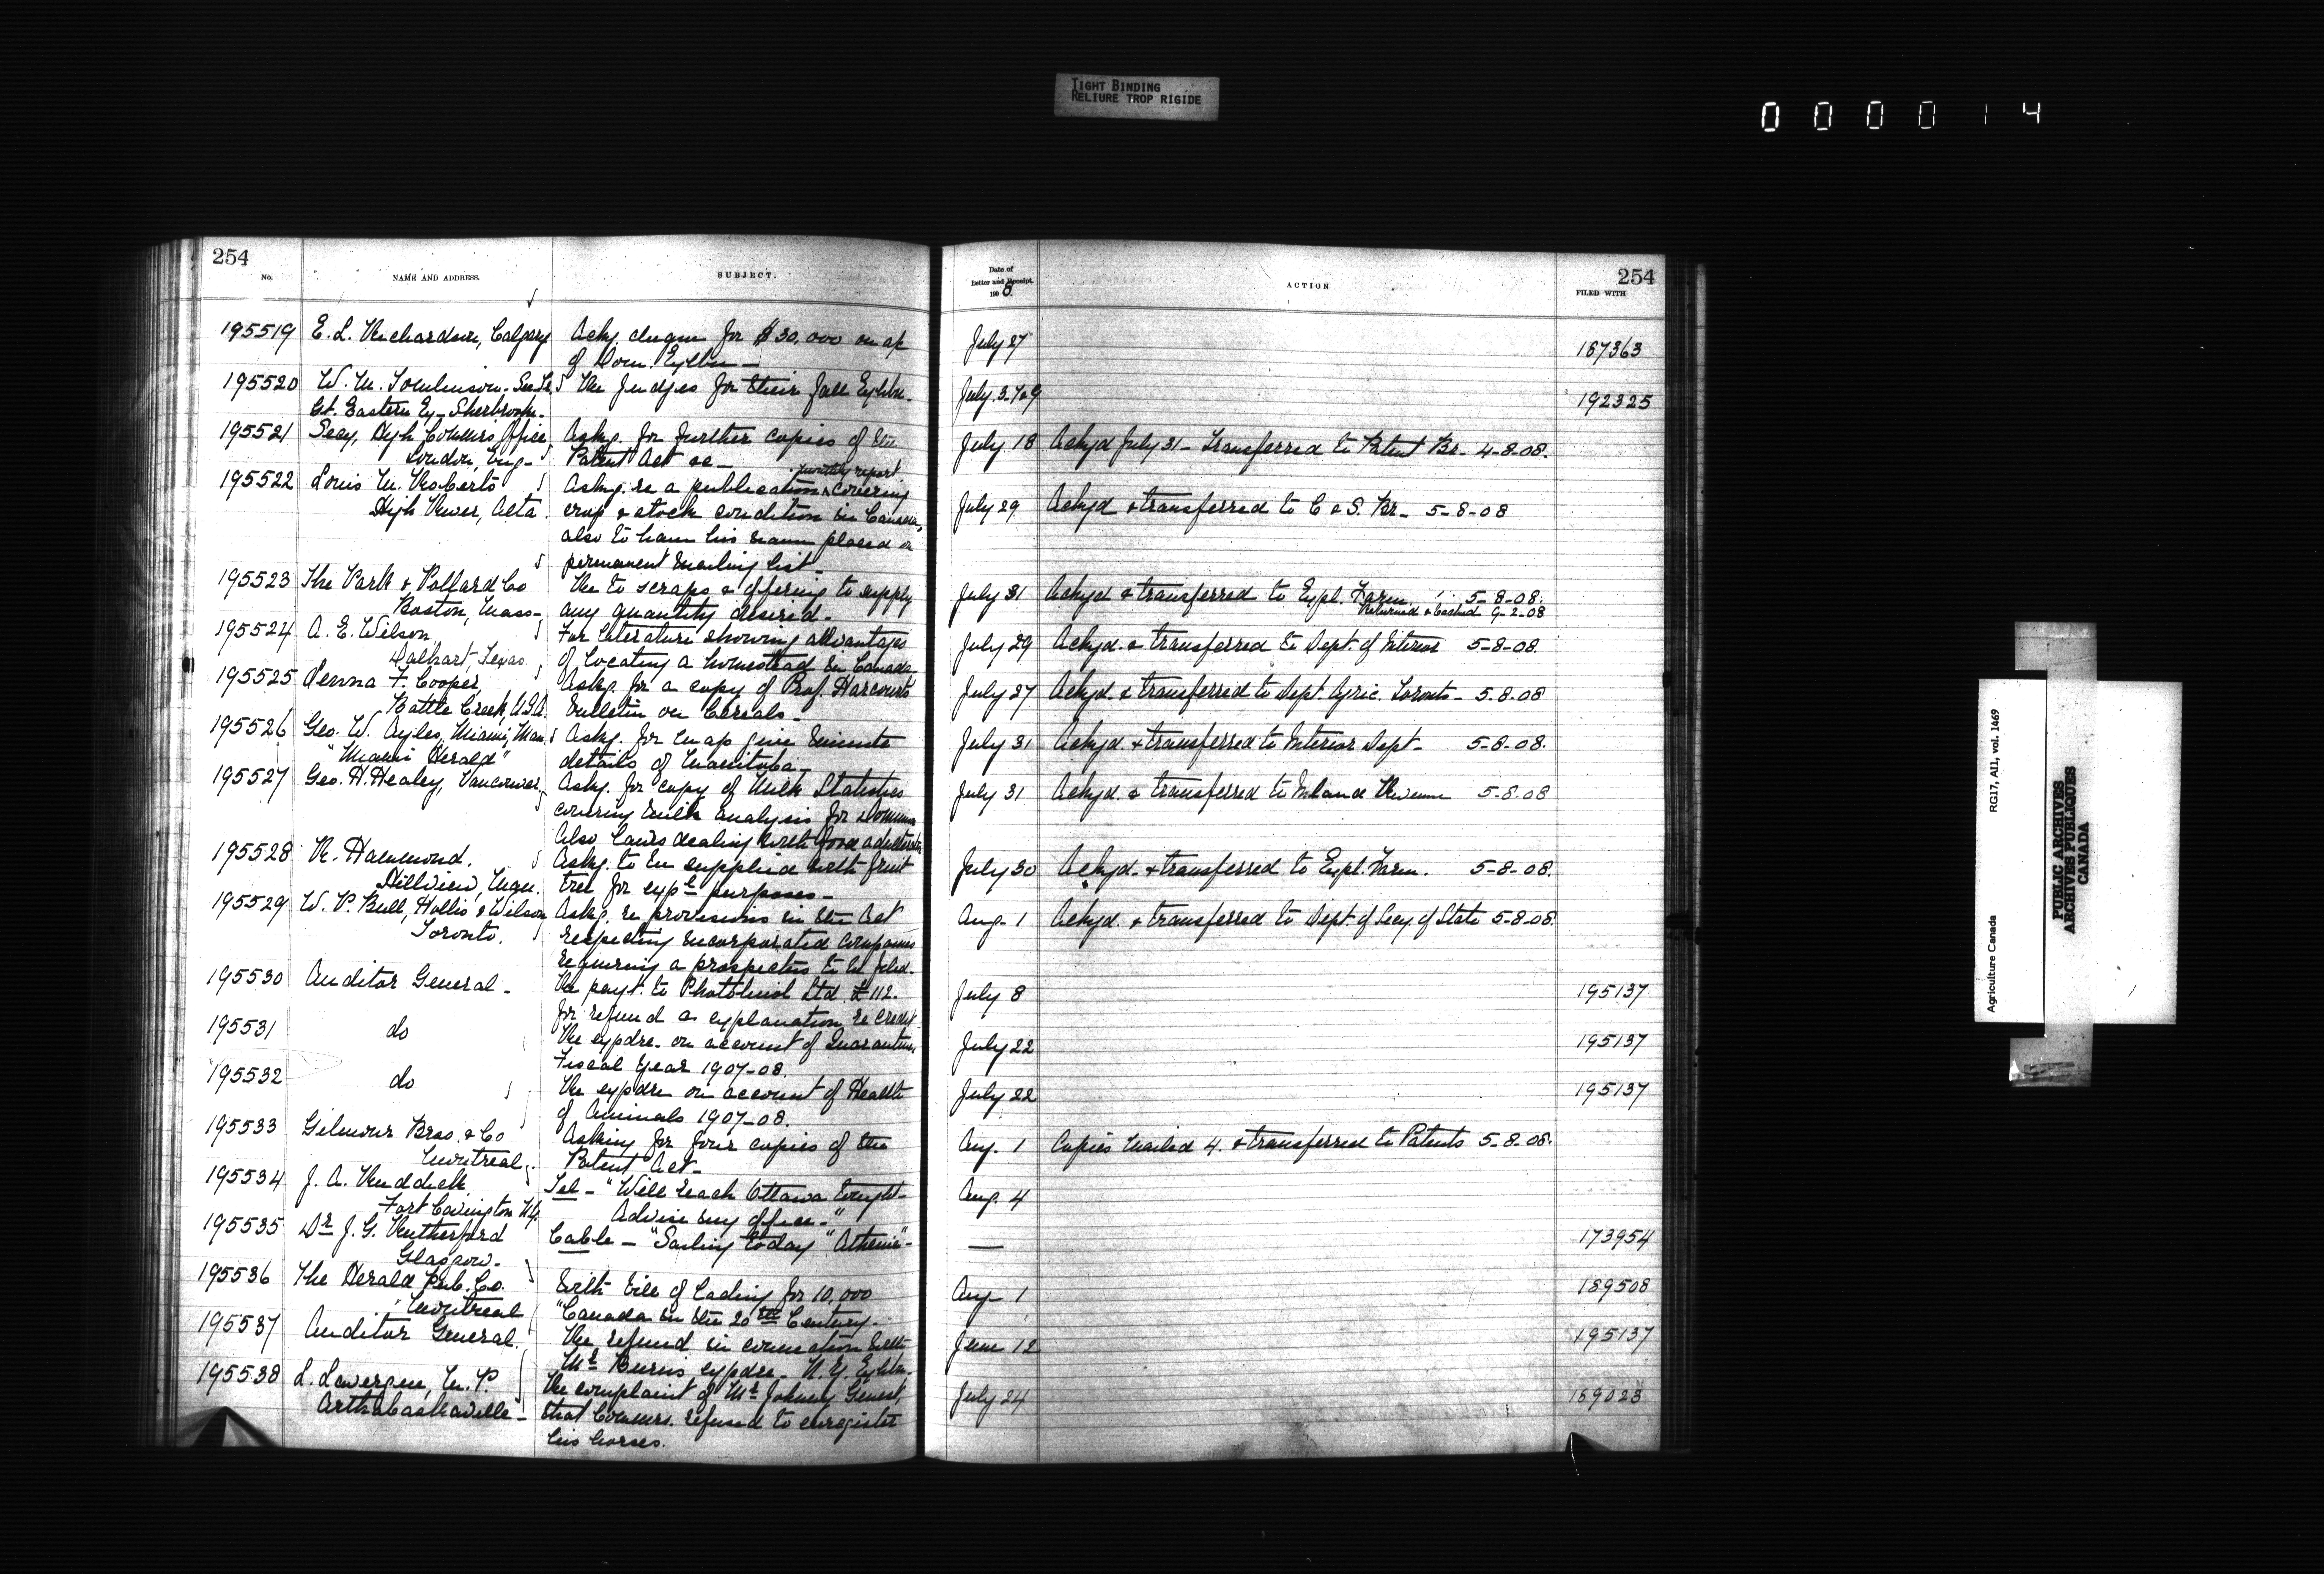 TIGHT BINDING
RELIURE TROP RIGIDE
000014
254
No.
NAME AND ADDRESS.
SUBJECT.
195519 E. L. Richardson, Calgary Askg. cheque for $30,000 on ap
of Dom. Exhbn—
195520 W. M. Tomlinson - Sec Tr. Re Judges for their fall Exhbn.
Gt. Eastern Ex - Sherbrooke.
195521 Secy, High Commrs Office, Askg. for further copies of the
London, Eng- Patent Act &c—
monthly report
195522 Louis M. Roberts Askg. re a publication & covering
High River, Alta. crop & stock condition in Canada,
also to have his name placed on
permanent mailing list—
195523 The Park & Pollard Co Re to scraps & offering to supply
Boston, Mass- any quantity desired.
195524 A. E. Wilson For literature showing advantages
Dalhart, Texas. of locating a homestead in Canada
195525 F. Cooper, Askg. for a copy of Prof. Harcourts
Battle Creek, U.S.A. bulletin on Cereals—
195526 Geo. W. Ayles, Miami, Man. Askg. for map give minute
"Miami Herald" details of Manitoba—
195527 Geo. H. Healey, Vancouver, Askg. for copy of Milk Statistics
covering milk analysis for Dominion
Also laws dealing with food adulteration
195528 R. Hammond. Askg. to be supplied with fruit
Hillview, Man. tree for expl purposes—
195529 W. P. Bull, Hollis & Wilson Askg. re provisions in the Act
Toronto. respecting incorporated companies
requiring a prospectus to be filed.
195530 Auditor General - Re payt. to Ltd £112.
for refund or explanation re credit
195531 do Re expdre. on account of Quarantine,
Fiscal Year 1907-08.
195532 do Re expdre on account of Health
of Animals 1907-08.
195533 Gilmour Bros. & Co Asking for four copies of the
Montreal. Patent Act—
195534 J. A. Ruddick Tel - "Will reach Ottawa tonight-
Fort Covington N.Y. Advise my office-"
195535 Dr J. G. Rutherford Cable - "Sailing today "Athenia"-
Glasgow-
195536 The Herald Pub. Co. With bill of lading for 10,000
Montreal "Canada in the 20th Century-
195537 Auditor General. Re refund in connection with
Mr Burns expdre. N.Y. Exhbn-
195538 L. Lavergne, M. P. Re complaint of Mr Johnny Genest,
Arthabaskaville- that Commrs. refused to enregister
his horses.
Date of
Letter and Receipt.
1908
ACTION
254
FILED WITH
July 27 187363
July 192325
July 18 Ackgd July 31 - Transferred to Patent Br. 4-8-08.
July 29 Ackgd & transferred to C & S. Br- 5-8-08
July 31 Ackgd & transferred to Expl. Farm 5-8-08.
Returned 9-2-08
July 29 Ackgd. & transferred to Dept. of Interior 5-8-08.
July 27 Ackgd. & transferred to Dept. Agric. Toronto- 5-8-08
July 31 Ackgd & transferred to Interior Dept- 5-8-08.
July 31 Ackgd. & transferred to Inland Revenue 5-8-08
July 30 Ackgd. & transferred to Expl. Farm. 5-8-08.
Aug. 1 Ackgd. & transferred to Dept. of Secy. of State 5-8-08.
July 8 195137
July 22 195137
July 22 195137
Aug. 1 Copies mailed 4. & transferred to Patents 5-8-08.
Aug. 4
— 173954
Aug 1 189508
June 12 195137
July 24 169023
RG17, AII, vol. 1469
Agriculture Canada
PUBLIC ARCHIVES
ARCHIVES PUBLIQUES
CANADA